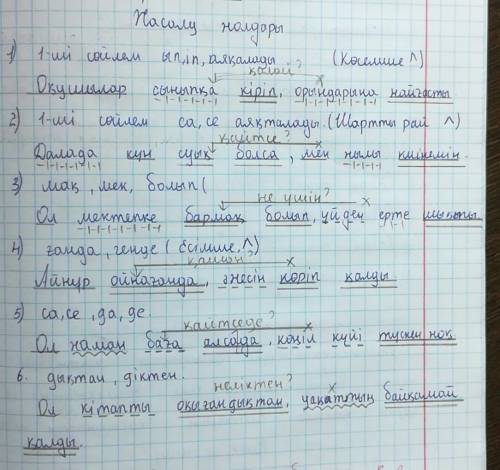 Жасалу жолдары
1) 1-ші сөйлем ып, іп, аяқталады (Көсемше ^)
қалай?
Оқушылар сыныпқа кіріп, орындарына жайғасты
2) 1-ші сөйлем са, се аяқталады. (Шартты рай ^)
қайтсе?
Далада күн суық болса, мен жылы киінемін.
3) мақ, мек, болып (
не үшін?
Ол мектепке бармақ болып, үйден ерте шықты.
4) ғанда, генде (есімше, ^)
қашан?
Айнұр ойнағанда, әжесін көріп қалды
5) са, се, да, де
қайтседе?
Ол жаман баға алсада, көңіл күйі түскен жоқ
6. дықтан, діктен.
неліктен?
Ол кітапты оқығандықтан, уақаттың байқамай
қалды.